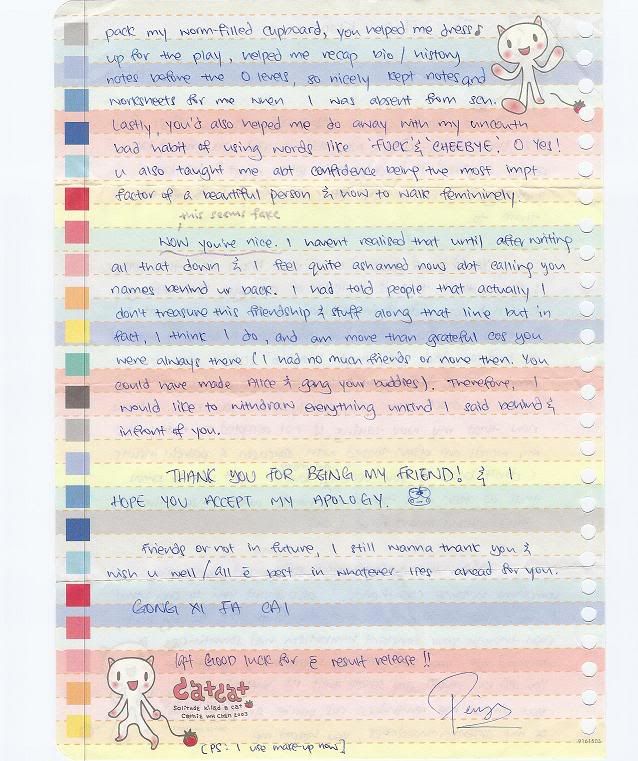 pack my worm-filled cupboard, you helped me dress♪
up for the play, helped me recap bio / history
notes before the O levels, so nicely kept notes and
worksheets for me when I was absent from sch.
Lastly, you'd also helped me do away with my uncouth
bad habit of using words like 'FUCK' & 'CHEEBYE'. O Yes!
u also taught me abt confidence being the most impt
factor of a beautiful person & how to walk femininely.
this seems fake
WOW you're nice. I havent realised that until after writing
all that down & I feel quite ashamed now abt calling you
names behind ur back. I had told people that actually I
don't treasure this friendship & stuff along that line but in
fact, I think I do, and am more than grateful cos you
were always there (I had no much friends or none then. You
could have made Alice & gang your buddies). Therefore, I
would like to withdraw everything unkind I said behind &
infront of you.
THANK YOU FOR BEING MY FRIEND! & I
HOPE YOU ACCEPT MY APOLOGY.
Friends or not in future, I still wanna thank you &
wish u well / all ē best in whatever lies ahead for you.
GONG XI FA CAI
GOOD LUCK for ē result release !!
catcat
Solitude Killed a cat
Comix WH Chen 2003
(PS: I use make-up now]
9161503